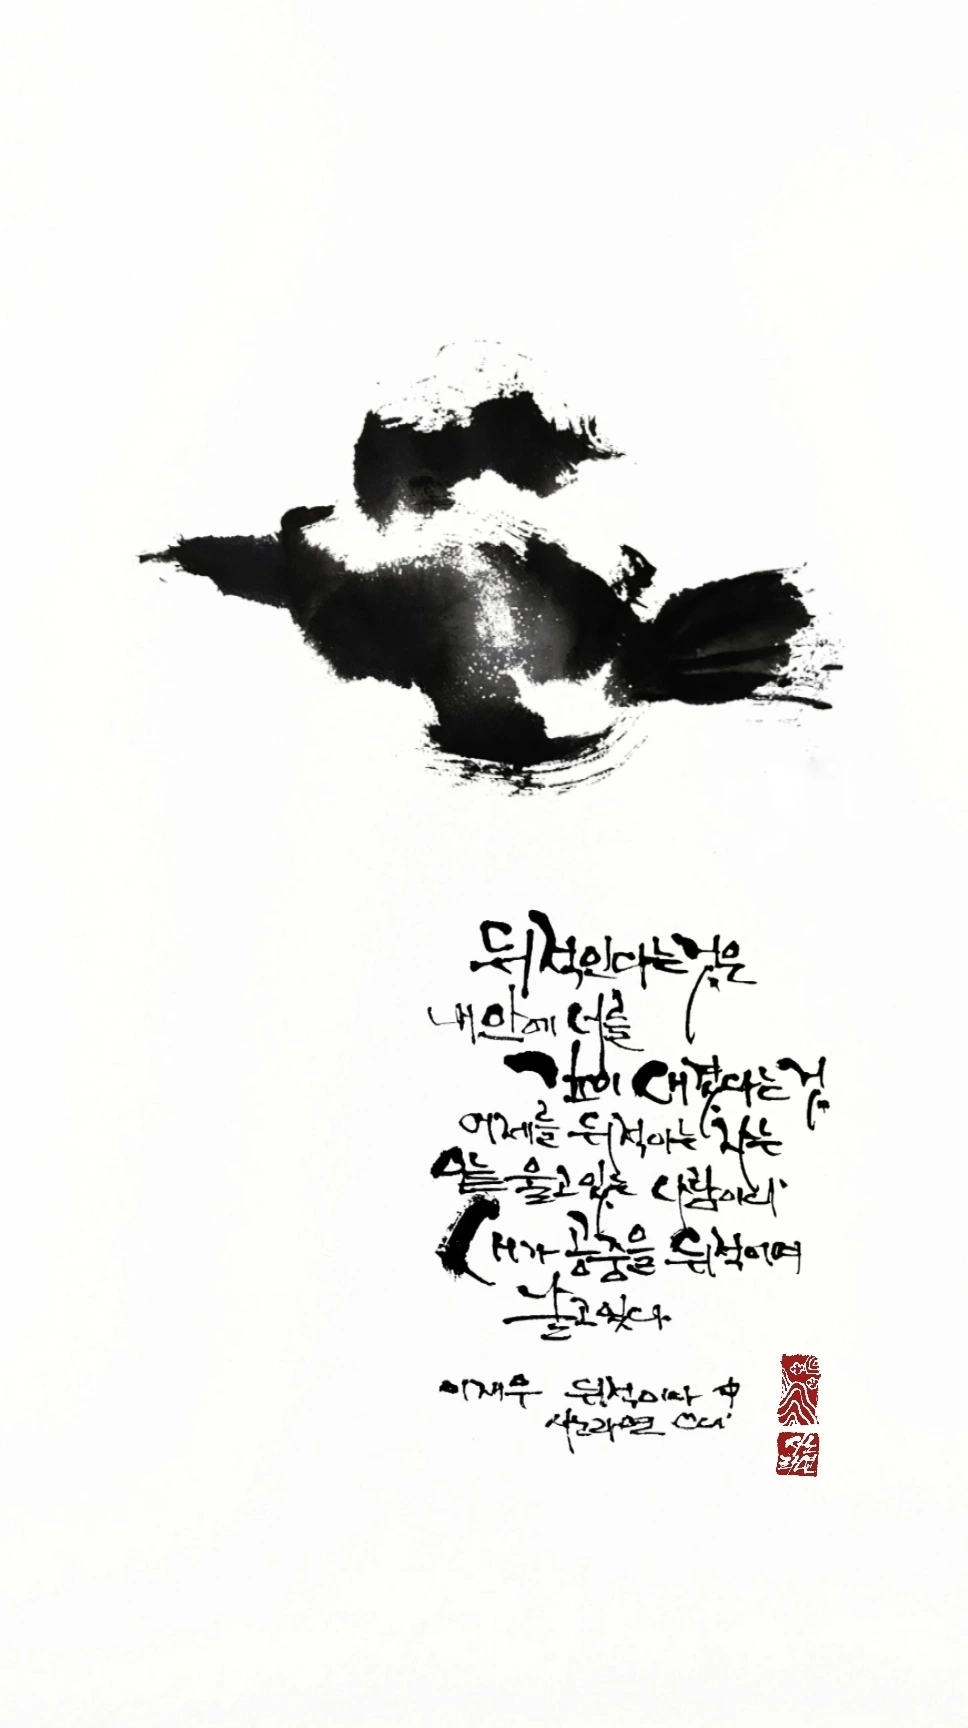 뒤적인다는 것은
내 안에 너를
깊이 새겼다는 것
어제를 뒤적이는 자는
오늘 울고 있는 사람이리
새가 공중을 뒤적이며
날고 있다
이재무 뒤척이다 中